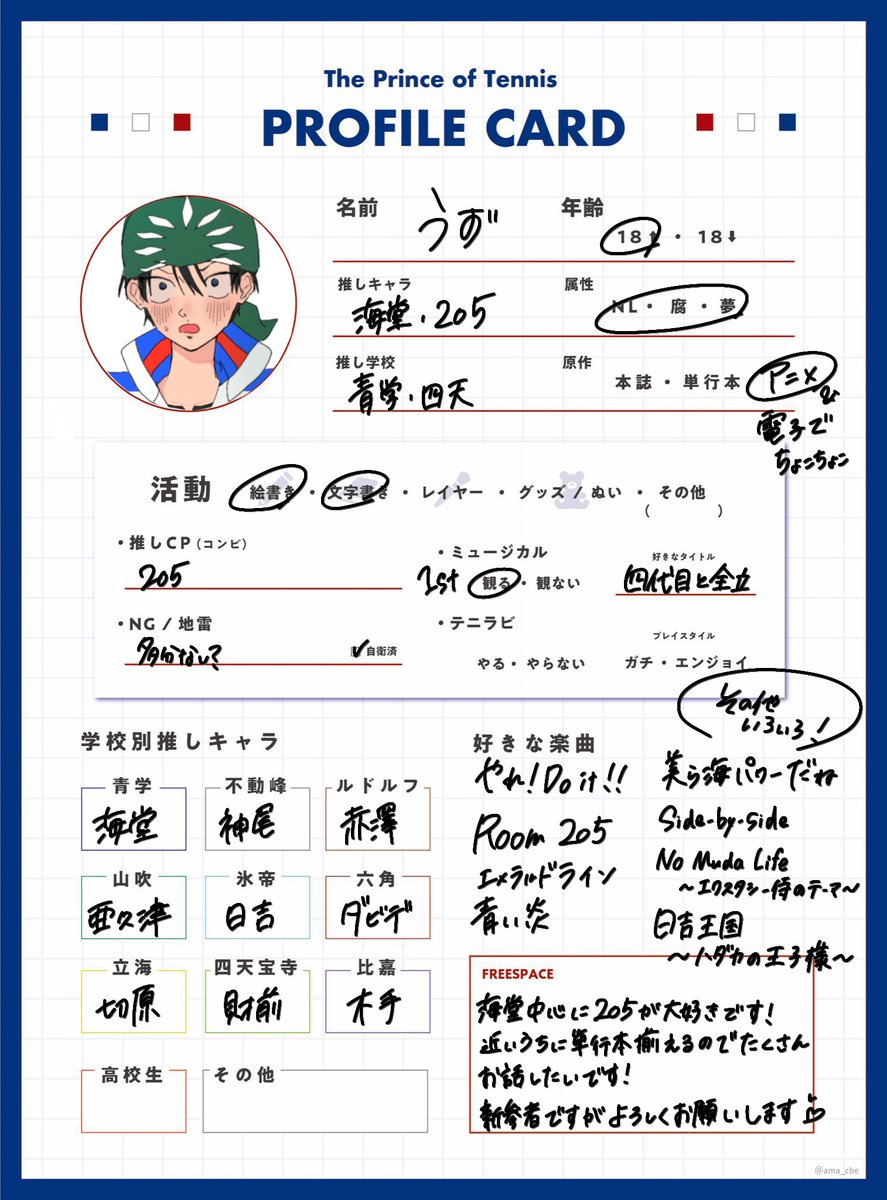 The Prince of Tennis
PROFILE CARD
名前
うず
年齢
18⬆・18⬇
推しキャラ
海堂・205
属性
NL・腐・夢
推し学校
青学・四天
原作
本誌・単行本
アニメ
電子で
ちょこちょこ
活動
絵書き・文字書き・レイヤー・グッズ / ぬい・その他
(　　　)
・推しCP(コンビ)
205
・ミュージカル
1st 観る・観ない
好きなタイトル
四代目と全立
・NG / 地雷
多分なし?
✔自衛済
・テニラビ
やる・やらない
プレイスタイル
ガチ・エンジョイ
学校別推しキャラ
青学
海堂
不動峰
神尾
ルドルフ
赤澤
山吹
亜久津
氷帝
日吉
六角
ダビデ
立海
切原
四天宝寺
財前
比嘉
木手
高校生
その他
好きな楽曲
その他
いろいろ!
やれ!Do it!!
Room 205
エメラルドライン
青い炎
美ら海パワーだね
Side-by-side
No Muda Life
～エクスタシー侍のテーマ～
日吉王国
～ハダカの王子様～
FREESPACE
海堂中心に205が大好きです!
近いうちに単行本揃えるのでたくさん
お話したいです!
新参者ですがよろしくお願いします
@ama_cbe